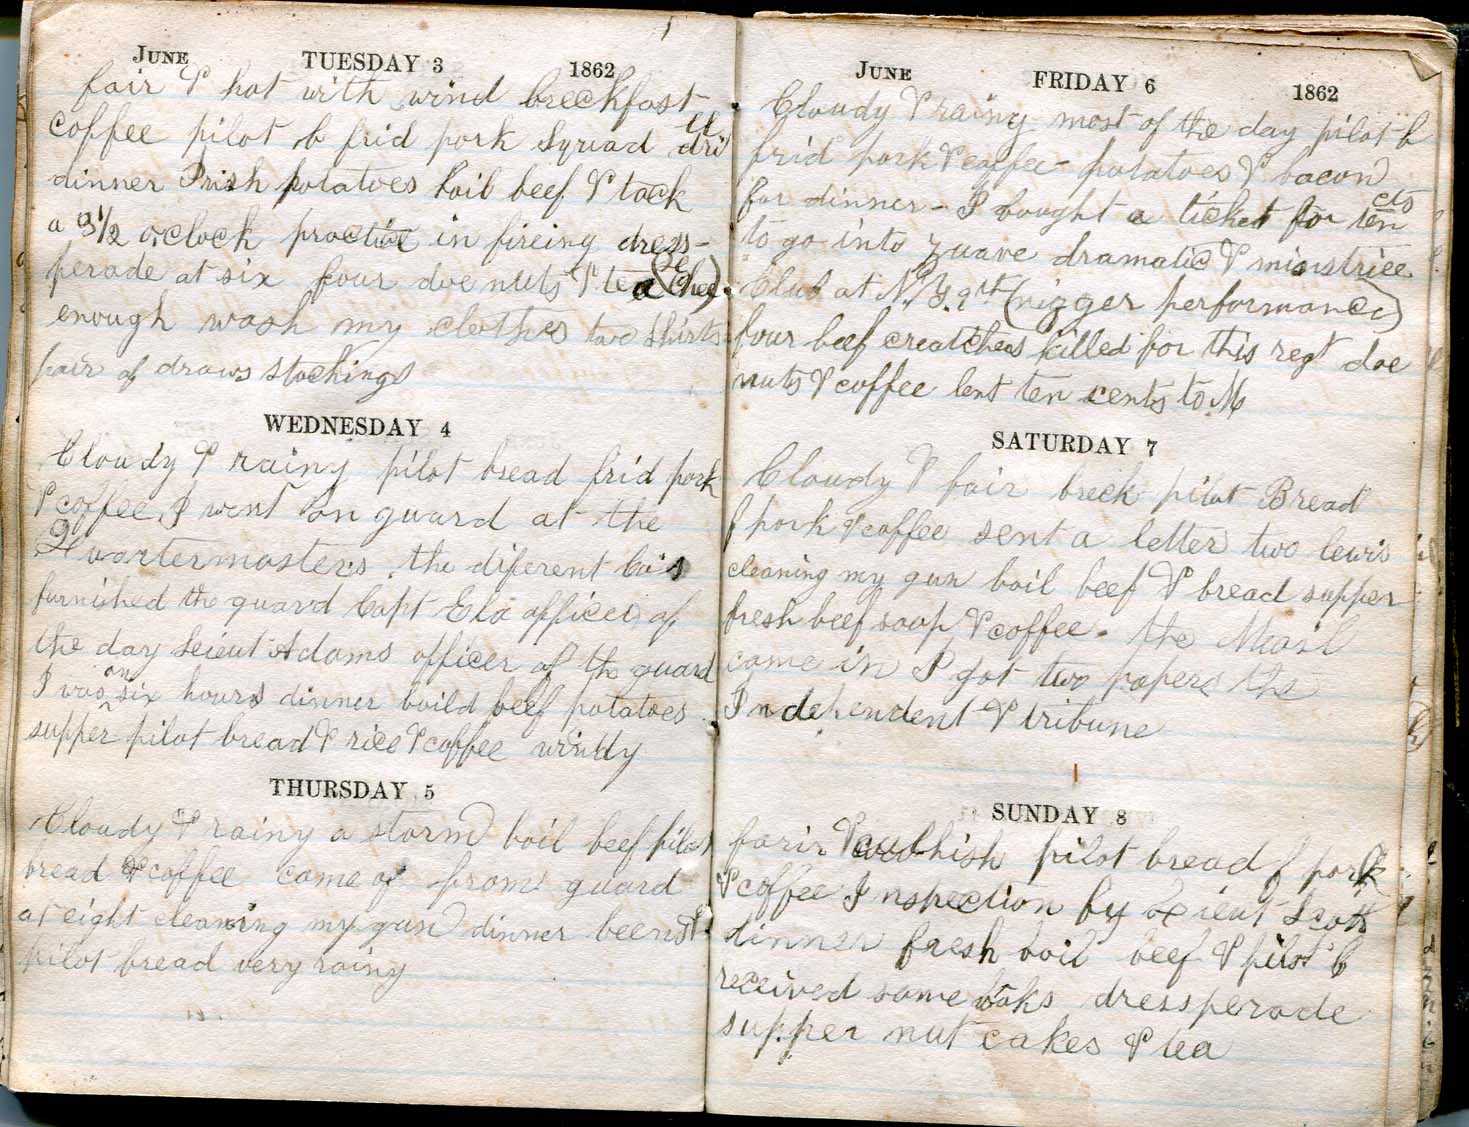 JUNE TUESDAY 3 1862
fair & hot with wind breckfast
coffee pilot b frid pork Squad drill
dinner Irish potatoes boil beef & tack
a 3 1/2 oclock practice in fireing dress-
perade at six four doe nuts & tea (Chee se)
enough wash my clothes two shirts
pair of draws stockings
WEDNESDAY 4
Cloudy & rainy pilot bread frid pork
& coffee I went on guard at the
Quartermasters the diferent Co's
furnished the guard Capt Ela officer of
the day Leieut Adams officer of the guard
I was on six hours dinner boild beef potatoes
supper pilot bread & rice & coffee windy
THURSDAY 5
Cloudy & rainy a storm boil beef pilot
bread & coffee come of from guard
at eight cleaning my gun dinner
pilot bread very rainy
JUNE FRIDAY 6 1862
Cloudy & rainy most of the day pilot b
frid pork & coffee - potatoes & bacon
for dinner - I bought a ticket for ten cts
to go into zuave dramatic &
Club at N.Y. 9th (nigger performance)
four beef creatchers killed for this regt doe
nuts & coffee lent ten cents to M
SATURDAY 7
Cloudy & fair breck pilot Bread
f pork & coffee sent a letter two lewis
cleaning my gun boil beef & bread supper
fresh beef soop & coffee - the Meail
come in I got two papers the
Independent & tribune
SUNDAY 8
farir & pilot bread f pork
& coffee Inspection by Leieut Scott
dinner fresh boil beef & pilot b
received some dressperade
supper nut cakes & tea